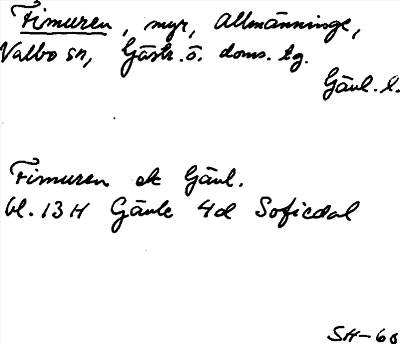 Fimuren, myr, Allmänninge,
Valbo sn, Gästr. ö. doms. tg.
Gävl. l.
Fimuren ek Gävl.
bl. 13 H Gävle 4d Sofiedal
SH-68